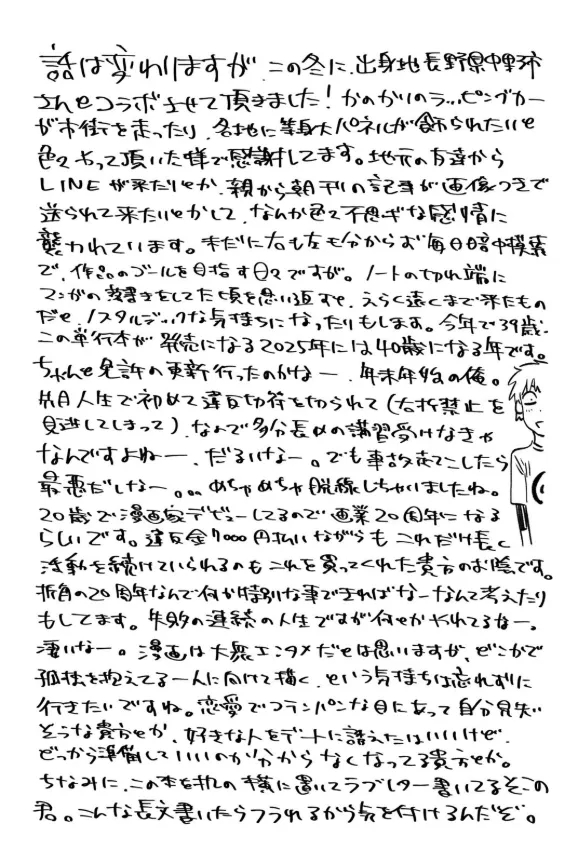 話は変わりますが、この冬に、出身地長野県中野市
さんとコラボさせて頂きました！かのかりのラッピングカー
が市街を走ったり、各地に等身大パネルが飾られたいと
色々やって頂いた様で感謝してます。地元の友達から
LINEが来だいとか、親から朝刊の記事が画像つきで
送られて来たいとかして、なんか色々不思ギな感情に
襲われています。未だに右も左も分からず毎日暗中模索
で、作品のゴールを目指す日々ですが。ノートの切れ端に
マンガの落書きをしてた頃を思い返すと、えらく遠くまで来たもの
だと、ノスタルディックな気持ちになったりもします。今年で39歳。
この単行本が発売になる2025年には40歳になる年です。
ちゃんと免許の更新行ったのかなー、年末年始の俺。
先月人生で初めて違反切符を切られて(右折禁止を
見逃してしまって)、なんで多分長めの講習受けなきゃ
なんですよねー、だるいなー。でも事故走てこしたら
最悪だしなー。。。めちゃめちゃ脱線しちゃいましたね。
20歳で漫画家デビューしてるので画業20周年になる
らしいです。違反金7000円払いながらも これだけ長く
活動を続けていられるのもこれを買ってくれた貴方のお陰です。
折角の20周年なんで何か特別な事できればなーなんて考えたり
もしてます。失敗の連続の人生ですが何とかやれてるなー。
凄いなー。漫画は大衆エンタメだとは思いますが、どこかで
孤独を抱えてる一人に向けて描く、という気持ちは忘れずに
行きたいですね。恋愛でコテンパンな目にあって自分見失い
そうな貴方とか、好きな人をデートに誘えたはいいけど、
どっから準備していいのか分からなくなってる貴方とか。
ちなみに、この本を机の横に置いてラブレター書いてるそこの
君。こんな長文書いたらフラれるから気を付けるんだぞ。